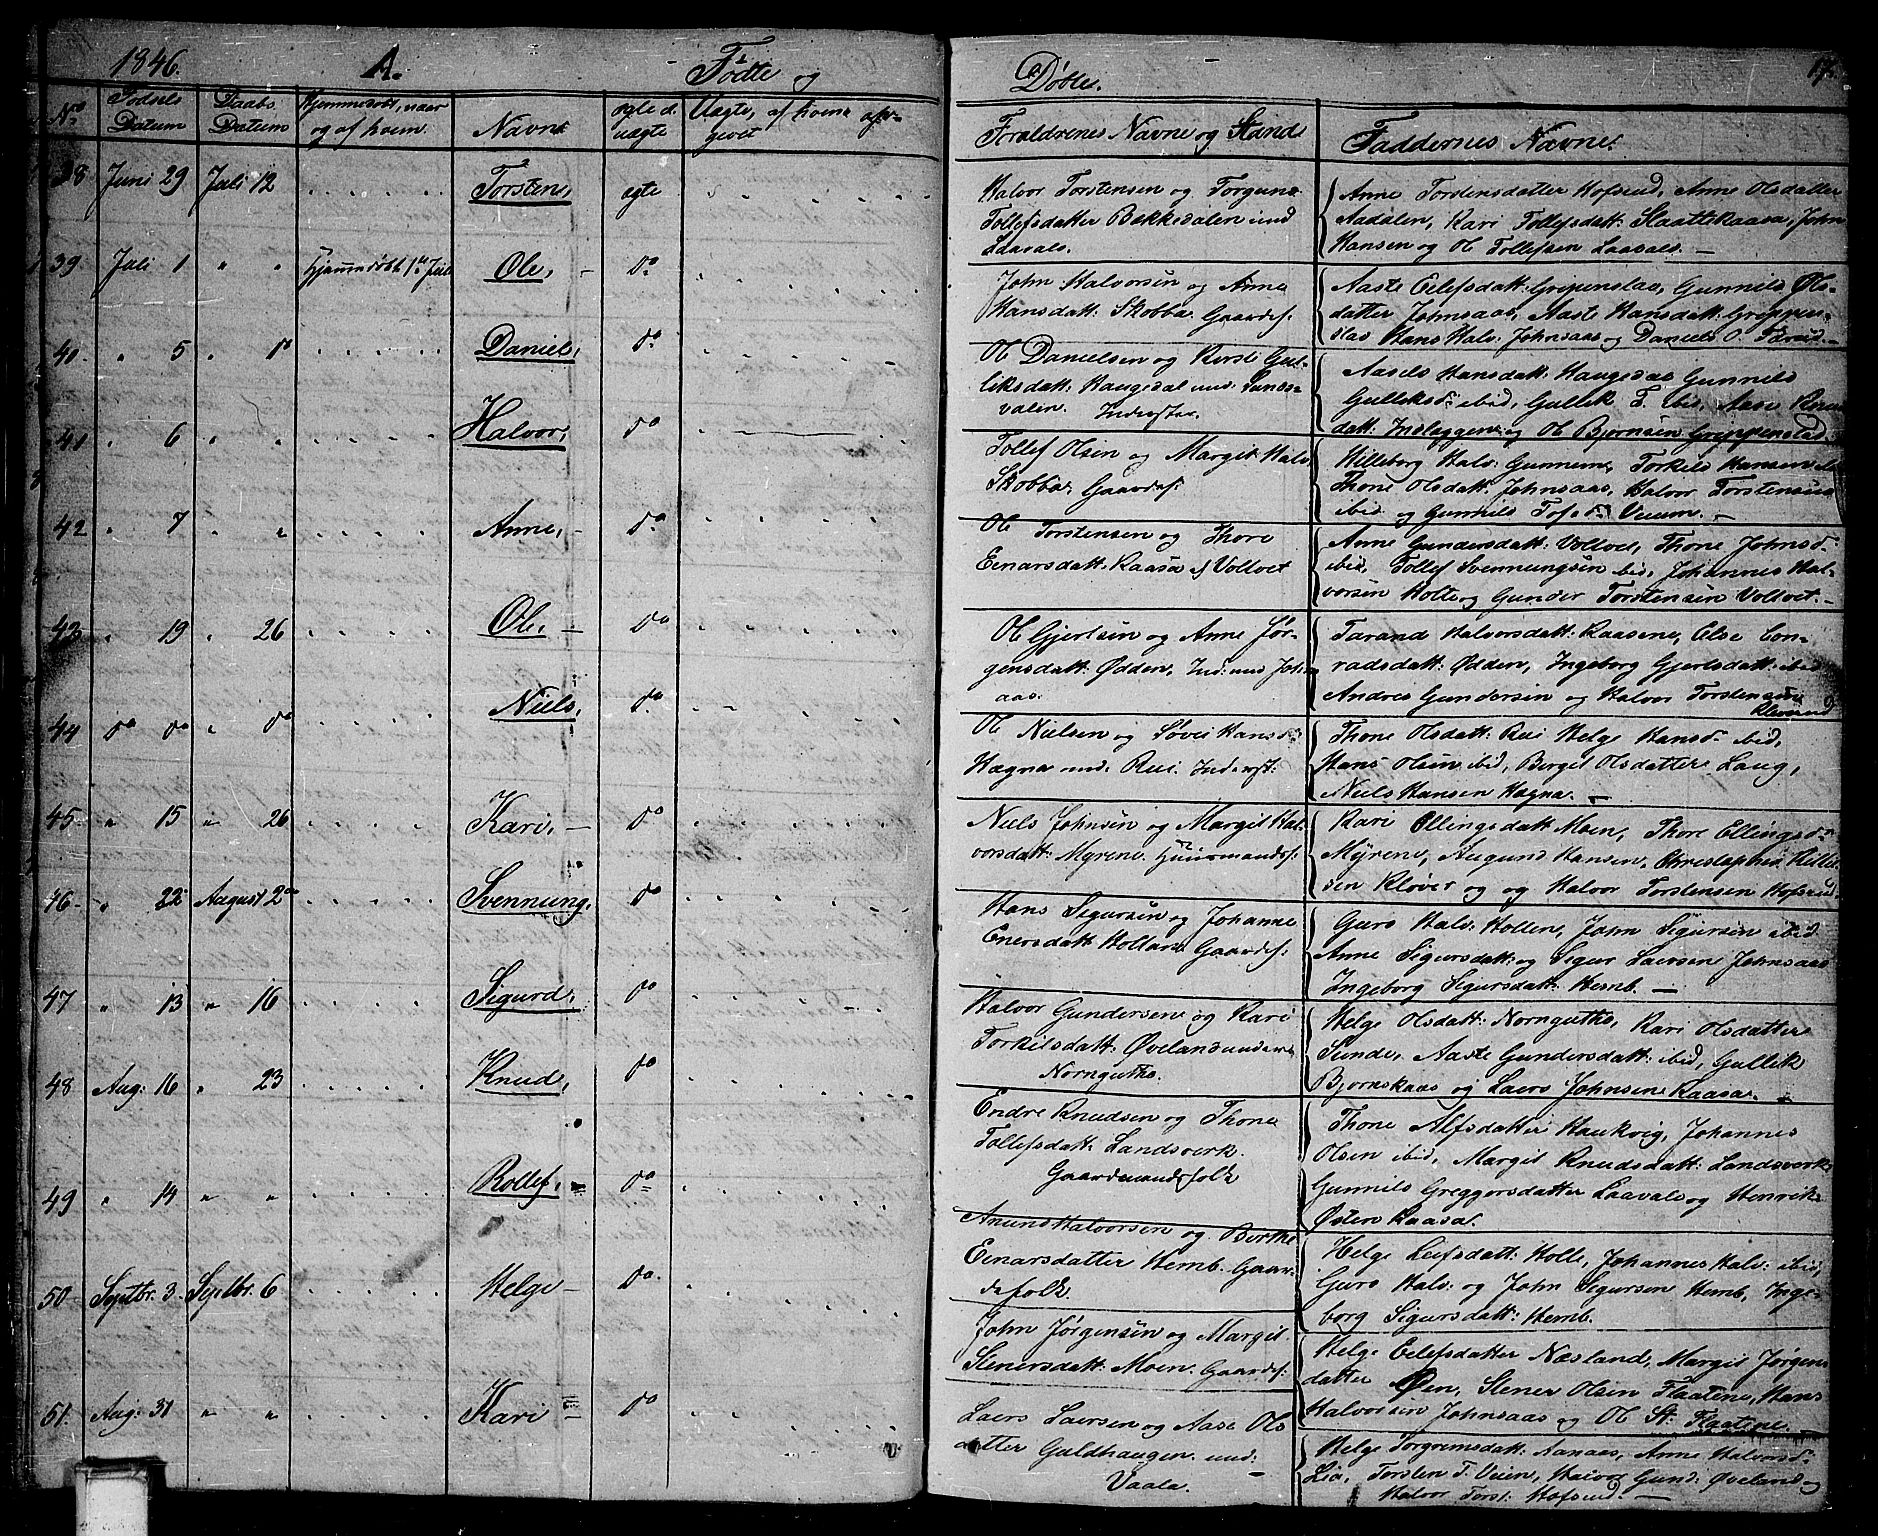 1846. A. Fødte og Døbte. 17.
No Fødsels Datum Daabs Datum Hjemmedøbt, naar og af hvem. Navne ægte el. uægte Uægte, af hvem opgivet Forældrenes Navne og Stand Faddernes Navne.
38 Juni 29 Juli 12 Torsten, ægte
Halvor Torstensen og Torgune
Tollefsdatter Bekkedalen und
Laavals.
Anne Tordensdatter Hofseid, Anne Olsdatter
Aadalen, Kari Tollefsdatt: Slaattekaasa, John
Hansen og Ol Tollefsen Laavals. —
39 Juli 1 " " Hjemmedøbt 1te Juli Ole, — do
John Halvorsen og Anne
Hansdatt: Skobba Gaardf:
Aaste Eilefsdatt: Gripenslaa, Gunnild Ols-
datter Johnsaas, Aaste Hansdatt: Grippen-
slad Hans Halv: Johnsaas og Daniels O.
40. " 5 " Daniel, do
Ol Danielsen og Kirst Gul-
liksdatt: Haugedal und: Sunds-
valen. Inderster.
Aaseld Hansdatt: Haugedal Gunnild
Gulleiksd: ibid, Gullek T. ibid, Aase
datt: Indleggen og Ol Bjørnsen Grippenslad.
41 " 6 " " Halvor, do
Tollef Olsen og Margit Halv
Skobba Gaardf:
Hilleborg Halv: Gunneme, Torkild Hansen
Thone Olsdatt: Johnsaas, Halvor Torstensen
ibid og Gunnild Tofsd: Veium. —
42 " 7 " " Anne, — do
Ol Torstensen og Thore
Einarsdatt: Kaasa f Voltvet
Anne Gundersdatt: Voltvet, Thone Johnsd:
ibid, Tollef Svennungsen ibid, Johannes Hal-
vorsen Holte og Gunder Torstensen Voltvet. —
43 " 19 " 26 Ole, — do
Ol Gjertsen og Anne Jør-
gensdatt: Ødden, Ind: und John
aas.
Tarand Halvorsdatt: Kaasene, Else Con-
radsdatt: Ødden, Ingeborg Gjertsdatt: ibid
Andres Gundersen og Halvor Torstensen
44 do do " do Niels, do
Ol Nielsen og Søvei Hansd:
Hægna und. Rui. Inderst:
Thone Olsdatt: Rui Helge Hansd: ibid,
Hans Olsen ibid, Birgit Olsdatter Laug,
Niels Hansen Hægna. —
45. " 15 " 26 Kari, — do
Niels Johnsen og Margit Hal-
vorsdatt: Myrene. Huusmandsf:
Kari Ellingsdatt Moen, Thore Ellingsd:
Myrene, Augund Hansen,
sen Kløver og og Halvor Torstensen Hofseid
46 " 22 August 2den Svennung, do
Hans Sigursen og Johanne
Enersdatt: Hollane Gaardf:
Guro Halv: Hollen, John Sigursen ibid
Anne Sigursdatt: og Sigur Laersen Johnsaas
Ingeborg Sigursdatt: Hemb. —
47 " 13 " 16 Sigurd, do
Halvor Gundersen og Kari
Torkilsdatt: Øveland under
Norngutho.
Helge Olsdatt: Norngutho, Kari Olsdatter
Sunde, Aaste Gundersdatt: ibid, Gullik
Bjørnskaas og Laers Johnsen Kaasa. —
48 Aug: 16 " 23 Knud, do
Endre Knudsen og Thone
Tollefsdatt: Landsverk.
Gaardmandsfolk
Thone Alfsdatter Haukvig, Johannes
Olsen ibid, Margit Knudsdatt: Landsverk
Gunnild Greggorsdatter Laavals og Henrik
Østen Kaasa.
49 " 14 " " Rollef, do
Anund Halvorsen og Birthe
Einarsdatter Hemb. Gaar-
defolk.
Helge Leifsdatt: Holte, Johannes Halv: ibid,
Guro Halv: og John Sigursen Hemb, Inge-
borg Sigursdatt: Hemb.
50 Septbr. 3. Septbr. 6 Helge do
John Jørgensen og Margit
Stenersdatt: Moen. Gaardf:
Helge Eilefsdatter Næsland, Margit Jørgens
datter Øen, Stener Olsen Flaatene, Hans
Halvorsen Johnsaas og Ol St: Flaatene. —
51. Aug: 31 " " Kari do
Laers Laersen og Aase Ols
datter Guldhaugen und:
Vaala. —
Helge Torgrimsdatt: Aanaas, Anne Halvorsd:
Lia, Torsten T. Veien, Halvor Gund: Øveland og
Halvor Torst: Hofseid. —